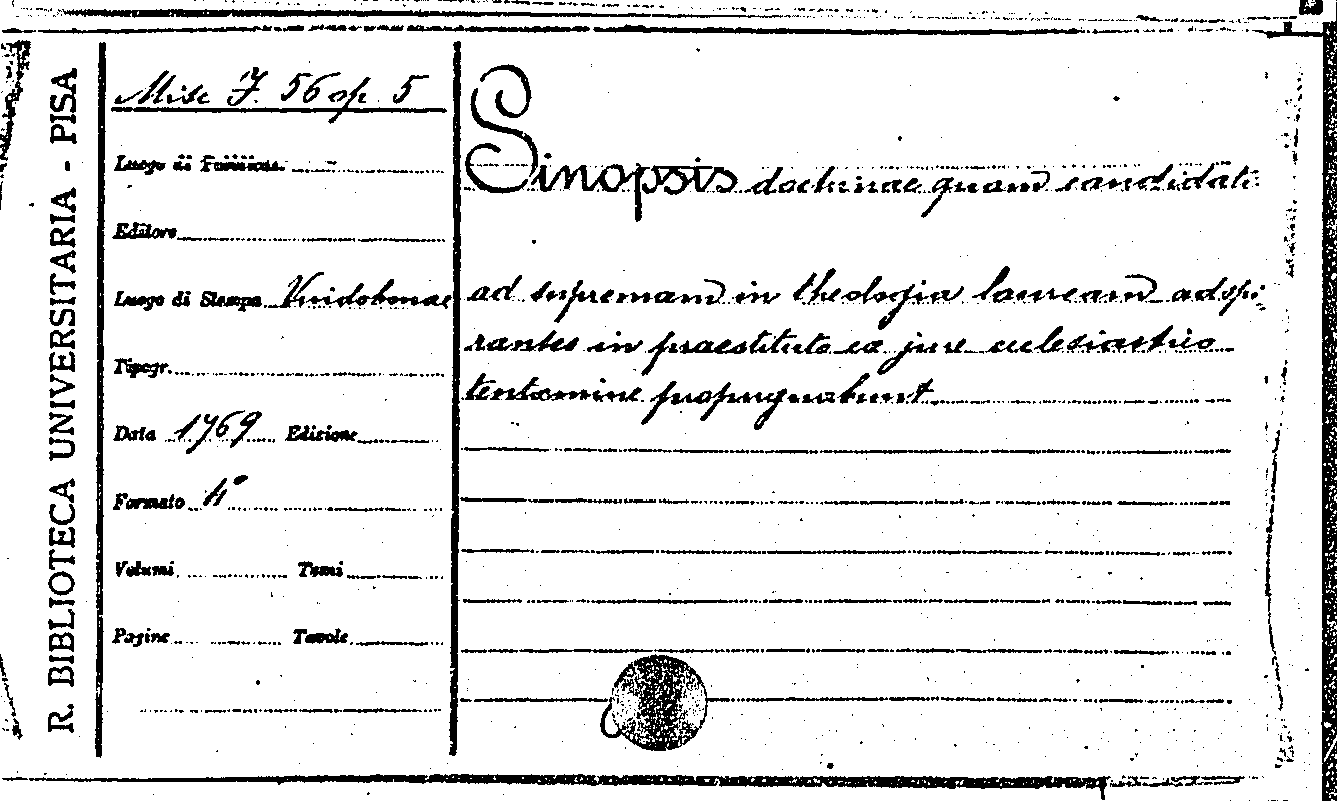 R. BIBLIOTECA UNIVERSITARIA - PISA
Misc F. 56 op. 5
Luogo di
Editore
Luogo di Stampa Vindobonae
Tipogr.
Data 1769 Edizione
Formato 4°
Volumi Tomi
Pagine Tavole
Sinopsis doctrinae quam candidati
ad supremam in theologia lauream adspi
rantes in praestituto ex jure ecclesiastico
tentamine propugnabunt